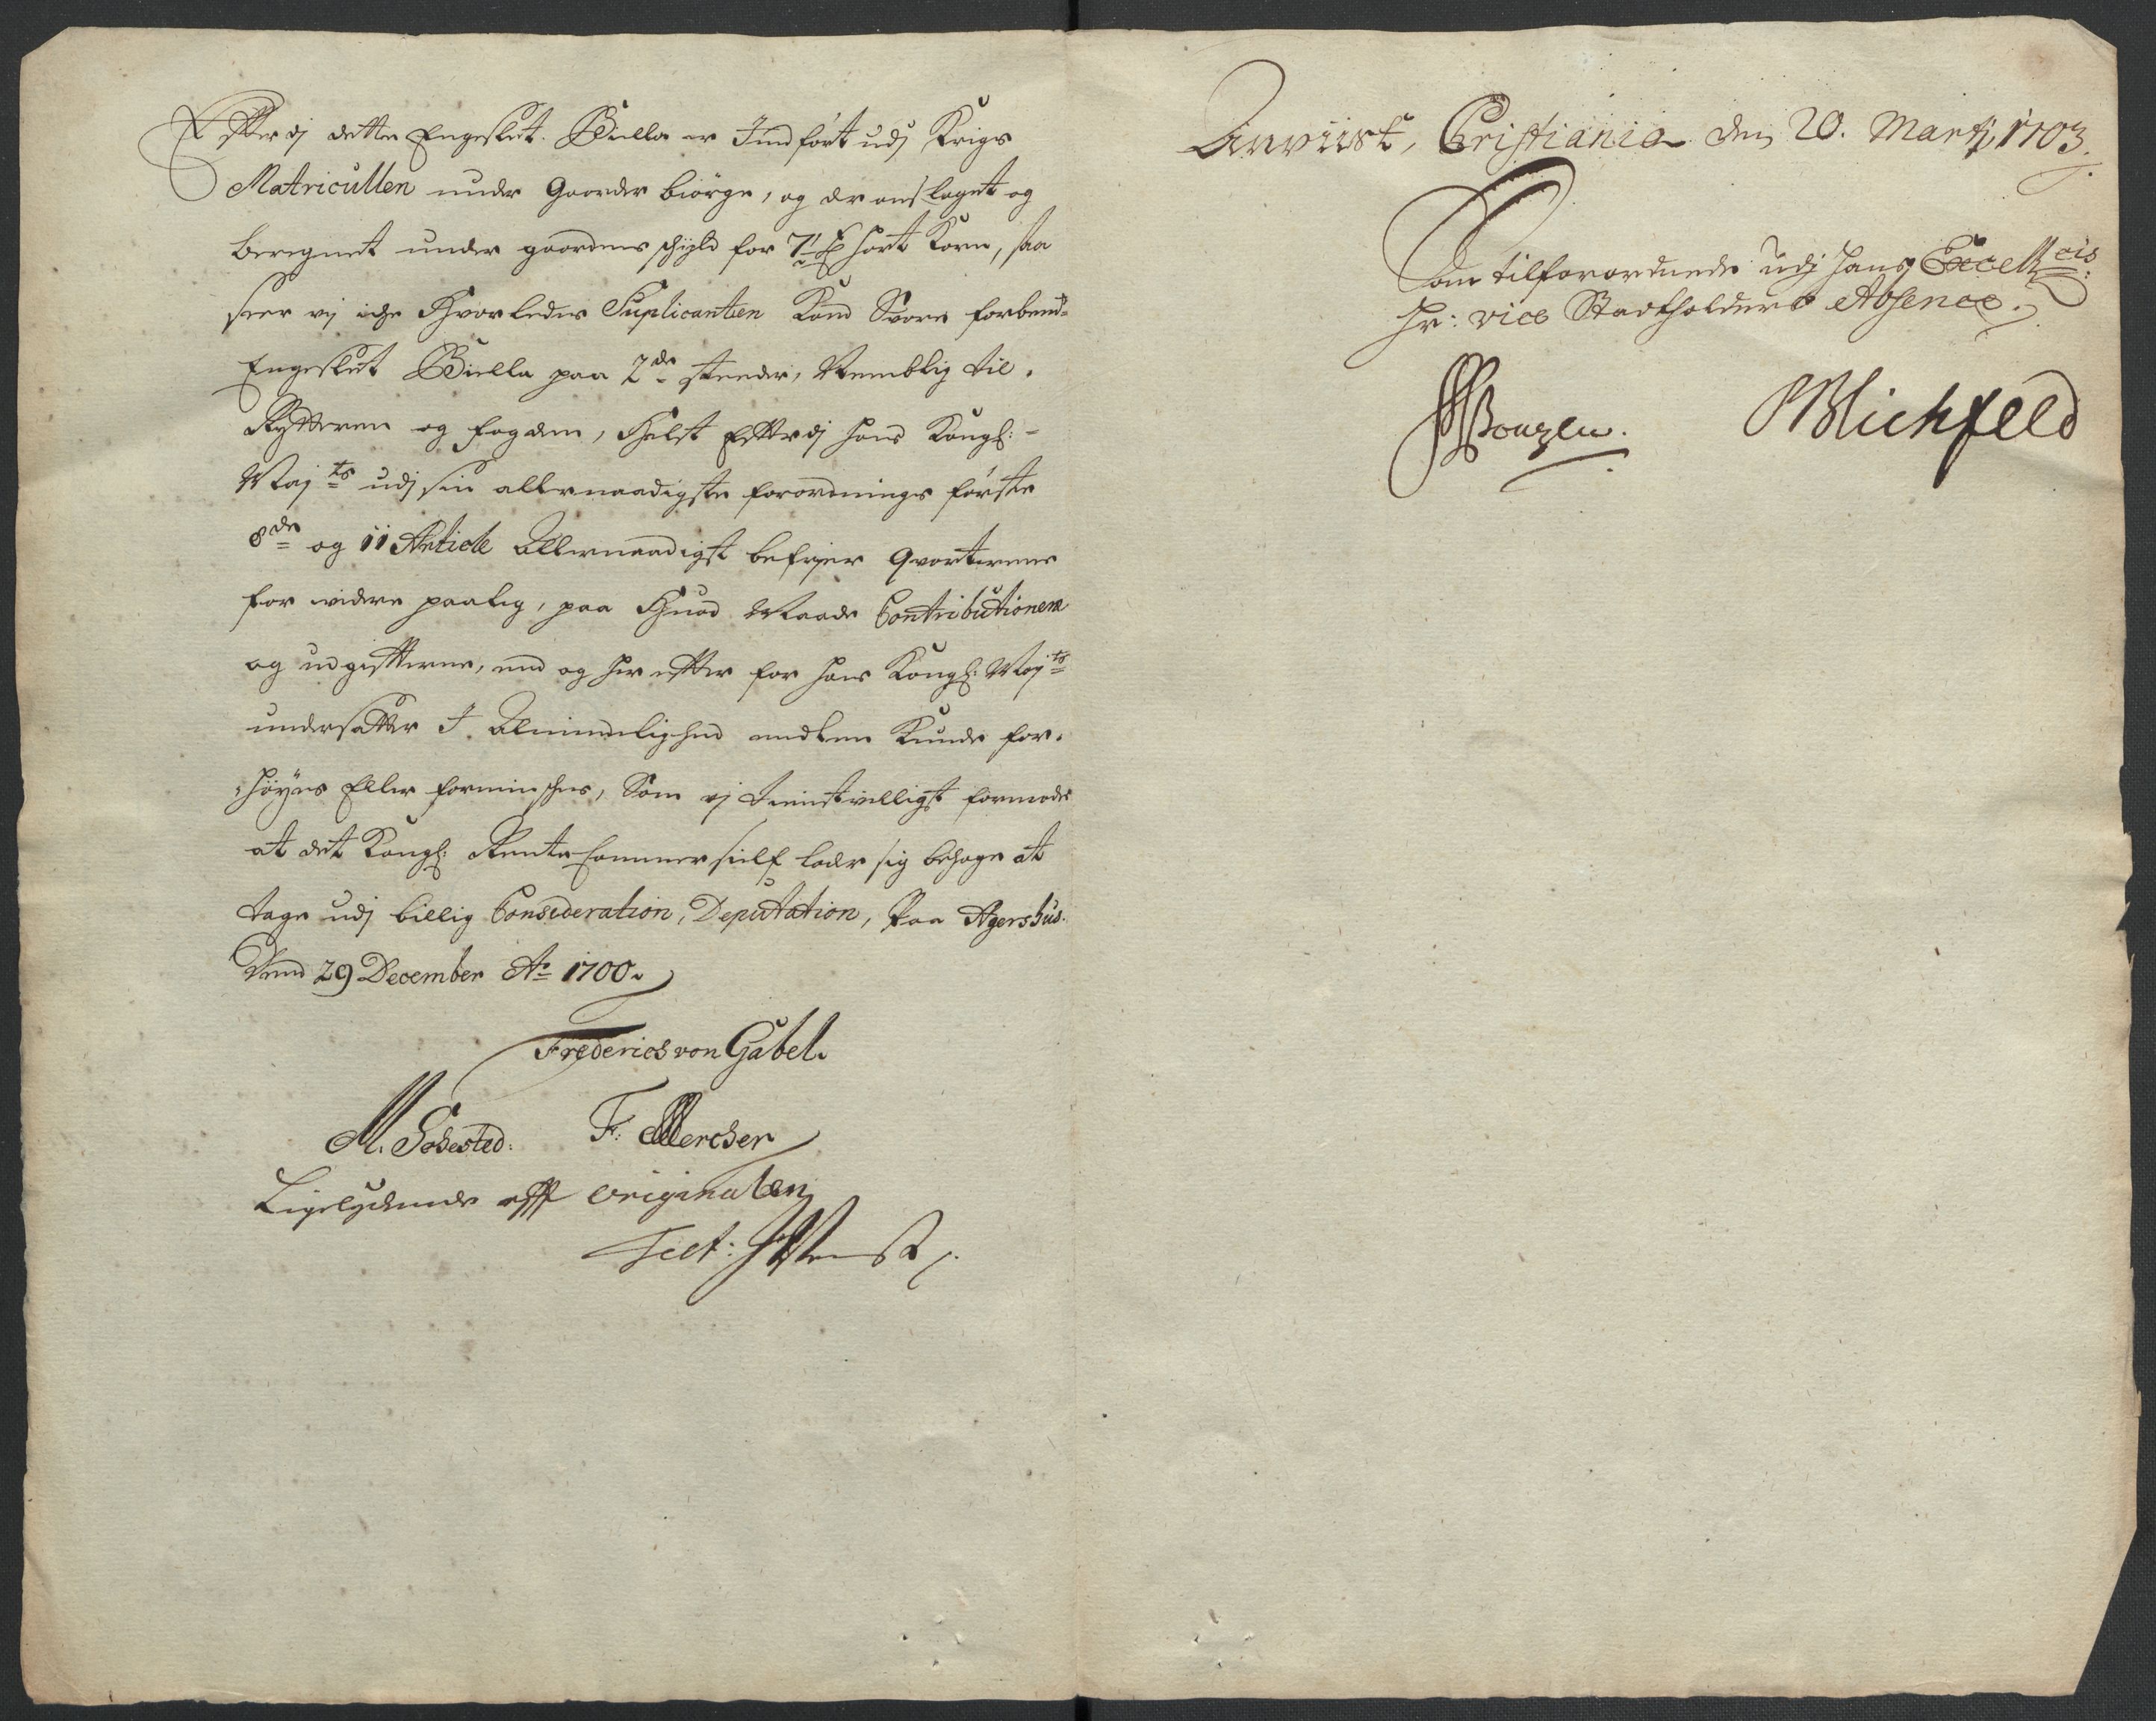 Efterdj dette Engeslet Biella er Indført udj Krigs
Matricullen under Gaarder biörge, og der anslaget og
beregnet under gaardens schyld for 7½ hart Korn, saa
seer vj iche Hvorledes Suplicanten Kand Svare forbend-
Engeslet Biella paa 2de steeder, Nemblig til
Rytteren og fogden, Helst Efterdj hans Kongl:
Maj ts udj sin allernaadigste forordnings første
8de og 11 Article Allernaadigst befrier Qvarterene
for videre paaleg, paa Huad Maade Contributionem
og udgifterne, end og her efter for hans Kongl: Maj ts
undersatter J Almindelighed Kunde for-
höyes Eller forminsches, Som vj tienstvilligst formode
at det Kongl: Rente Cammer sielf lader sig behage at
tage udj billig Consideration, Deputation, Paa Agershus
Dend 29 December Ao 1700.
Frederich von Gabel.
M. Sehested. F: Mercher
Ligelydende eff Originalen
Test:
Anviist, Cristiania den 20. Martj 1703.
Som tilforordnede udj hans Excell cis
Hr: vice Stadtholders Absence.